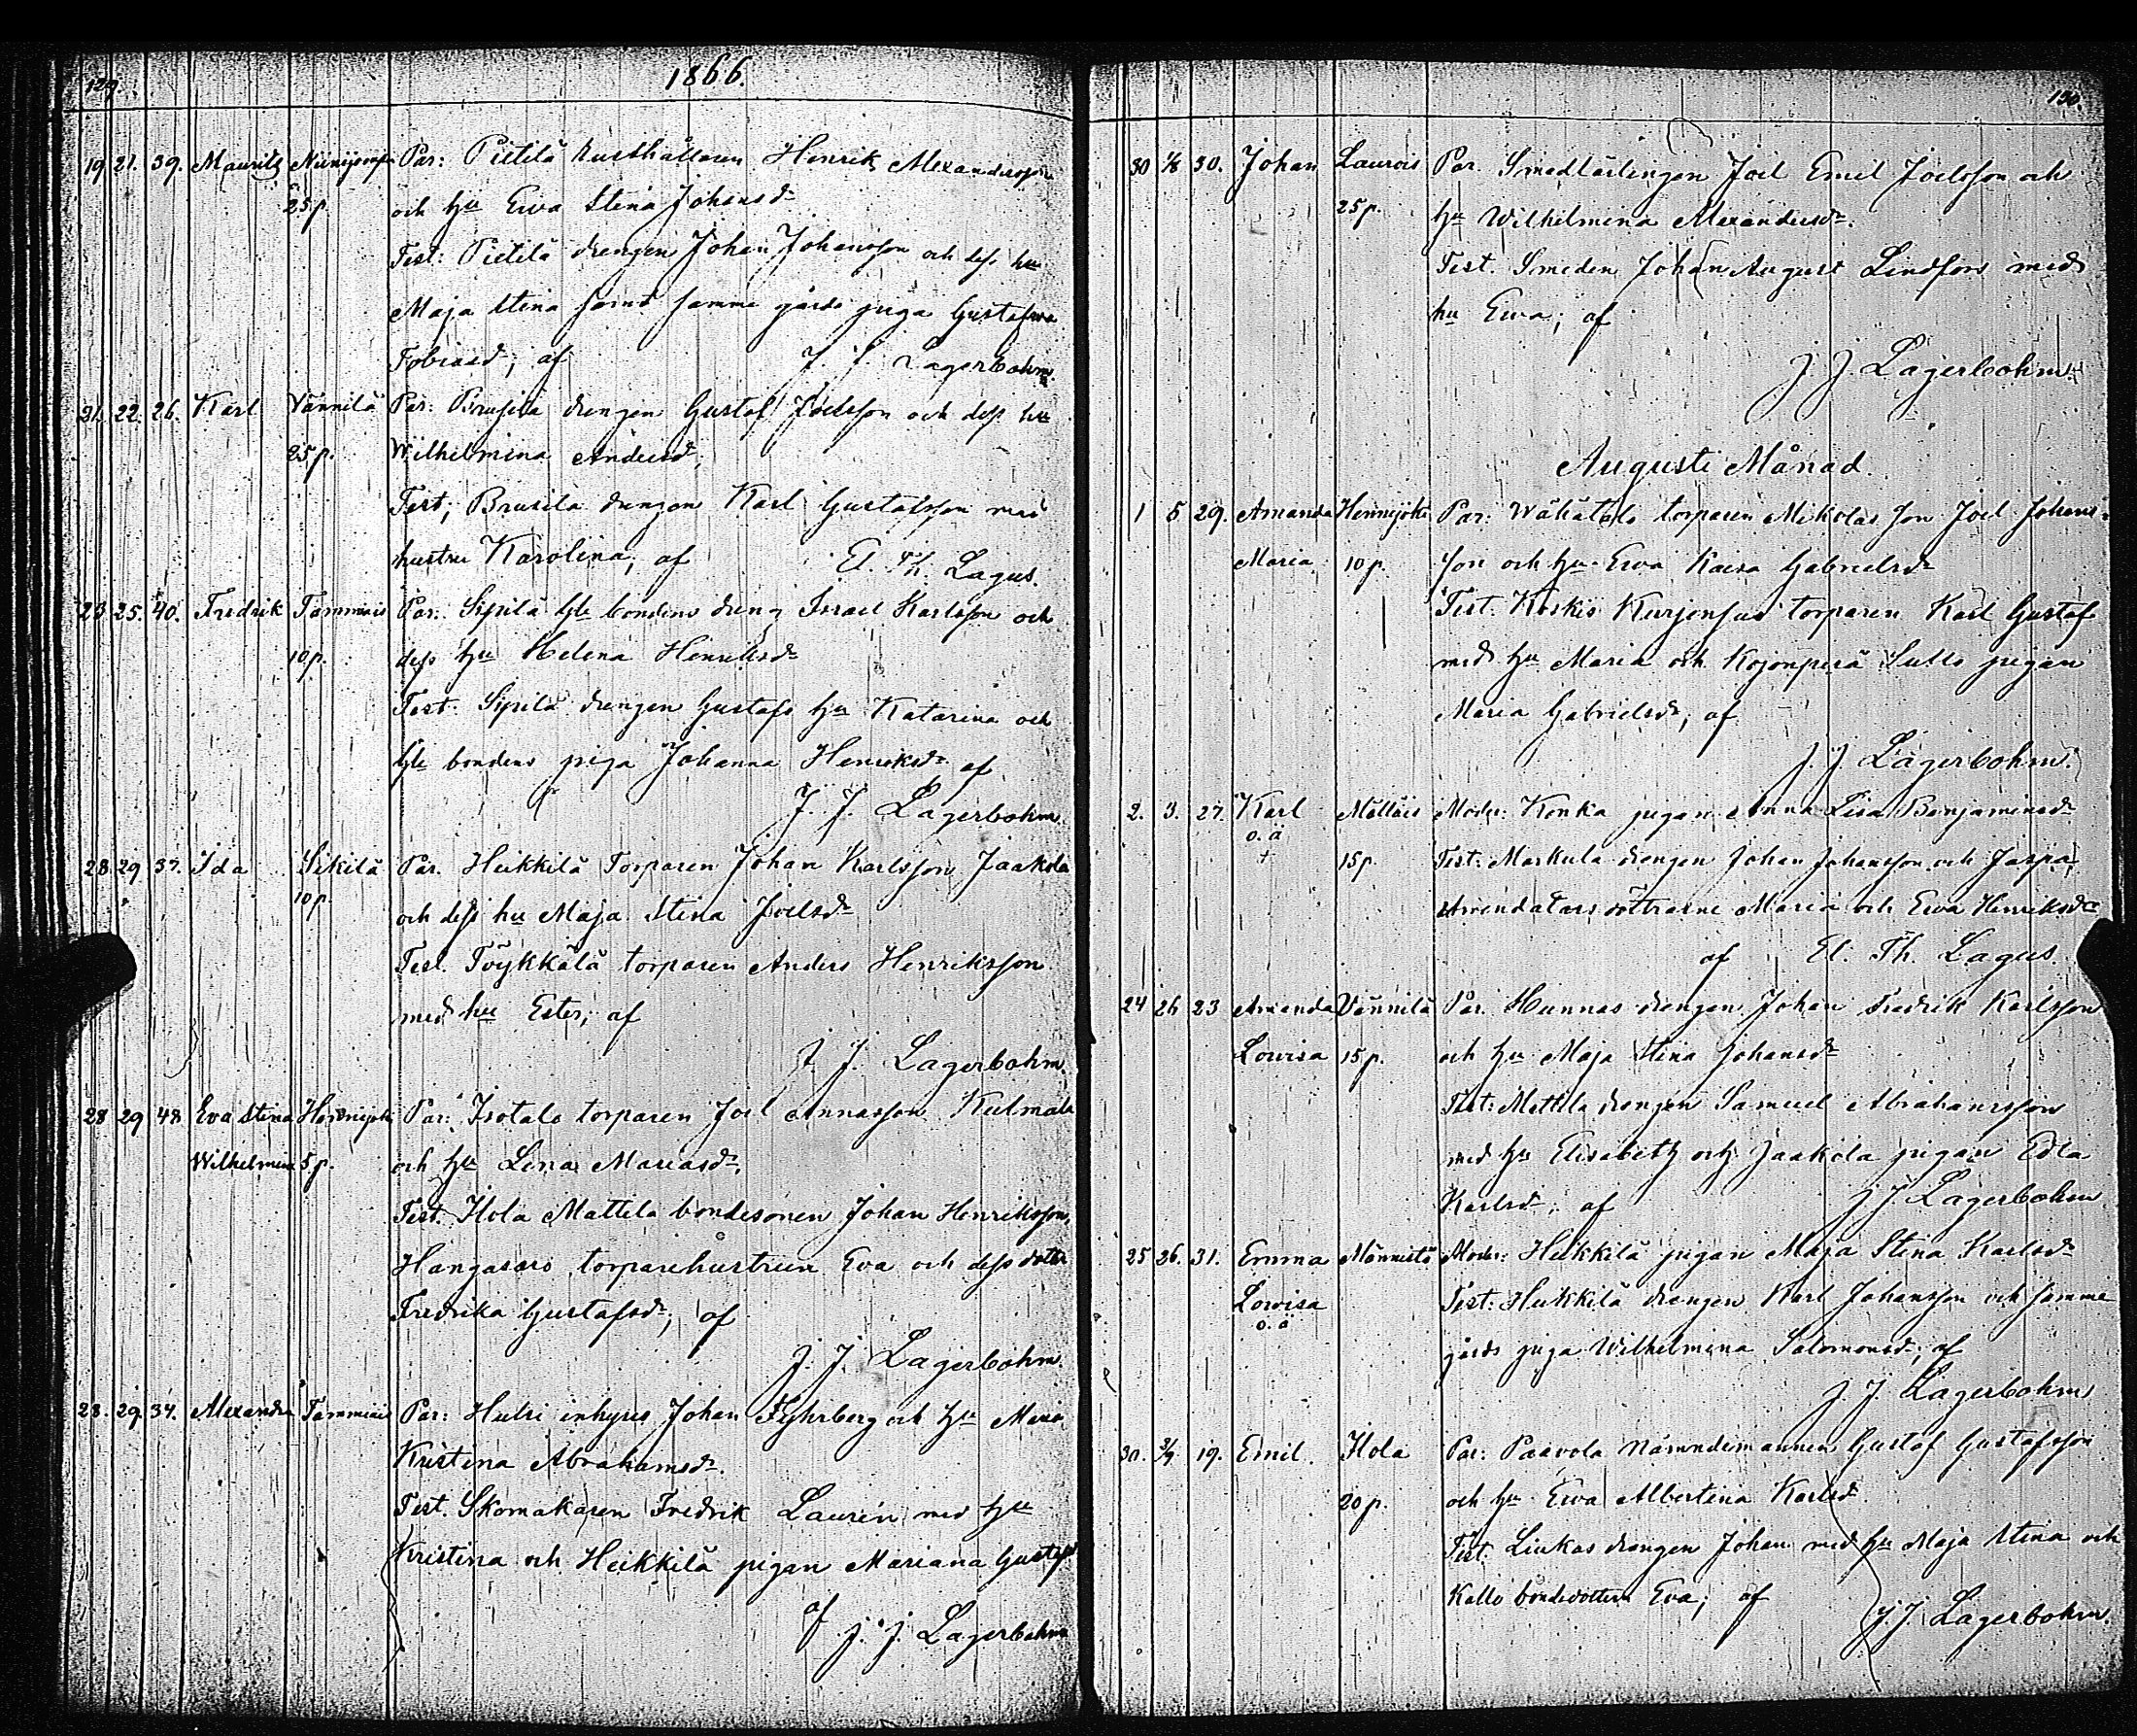 129.
1866.
19. 21. 39. Maurits Niinijoensu Par: Pietilä Rusthållaren Henrik Alexandersson
25 p. och hu Ewa Stina Johansdr
Test: Pietilä drengen Johan Johansson och dess hu
Maja Stina samt samme gårds piga Gustafwa
Tobiasdr; af J. J. Lagerbohm.
21. 22. 26. Karl Vännilä Par: Brusila drengen Gustaf Joelsson och dess hu
25 p. Wilhelmina Andersdr;
Test; Brusila drengen Karl Gustafsson med
hustru Karolina; af El. Th. Lagus.
23 25. 40. Fredrik Tammiais Par: Sipilä bondens dreng Israel Karlsson och
10 p. dess hu Helena Henriksdr
Test: Sipilä drengen Gustafs hu Katarina och
bondens piga Johanna Henriksdr af
J. J. Lagerbohm.
28 29 37. Ida Sikilä Par. Heikkilä Torparen Johan Karlsson Jaakola
10 p. och dess hu Maja Stina Joelsdr
Test. Töykkälä torparen Anders Henriksson
med hu Ester; af
J. J. Lagerbohm.
28 29 48 Eva Stina Hennijoki Par: Isotalo torparen Joel Annasson Kulmala
Wilhelmina 5 p. och hu Lena Mariasdr;
Test. Hola Mattila bondesonen Johan Henriksson,
Hangasaro torparehustrun Eva och dess dotter
Fredrika Gustafsdr; af
J. J. Lagerbohm.
28. 29. 34. Alexandra Tammiais Par: Hutri inhyses Johan Fyhrberg och hu Maria
Kristina Abrahamsdr.
Test. Skomakaren Fredrik Laurén med hu
Kristina och Heikkilä pigan Mariana Gustafsd
af J. J. Lagerbohm
130.
30 1/8 30. Johan Laurois Par. Smedlärlingen Joel Emil Joelsson och
25 p. hu Wilhelmina Alexandersdr.
Test. Smeden Johan August Lindfors med
hu Ewa; af
J. J. Lagerbohm.
Augusti Månad.
1 5 29. Amanda Hennijoki Par: Wähätalo torparen Mikolas son Joel Johans-
Maria 10 p. son och hu Ewa Kaisa Gabrielsdr
Test. Koskis Kurjensuo torparen Karl Gustaf
med hu Maria och Kojonperä pigan
Maria Gabrielsdr; af
J. J. Lagerbohm.
2. 3. 27. Karl Mällais Moder: Konka pigan Anna Lisa Benjaminsdr
o. ä
+ 15 p. Test: Markula drengen Johan Johansson och Jaspa
Arrendators döttrarne Maria och Ewa Henriksdr
af El. Th. Lagus.
24 26 23 Amanda Vännilä Par. Hunnas drengen Johan Fredrik Karlsson
Lowisa 15 p. och hu Maja Stina Johansdr
Test: Mattila drengen Samuel Abrahamsson
med hu Elisabeth och Jaakola pigan Edla
Karlsdr; af J. J. Lagerbohm
25 26. 31. Emma Männistö Moder: Heikkilä pigan Maja Stina Karlsdr
Lowisa Test: Heikkilä drengen Karl Johansson och samme
o. ä
gårds piga Wilhelmina Salomonsd; af
J. J. Lagerbohm
30. 3/9 19. Emil. Hola Par: Paavola Nämndemannen Gustaf Gustafsson
20 p. och hu Ewa Albertina Karlsdr.
Test. Liukas drengen Johan med hu Maja Stina och
Kallo bondedottern Eva; af J. J. Lagerbohm.